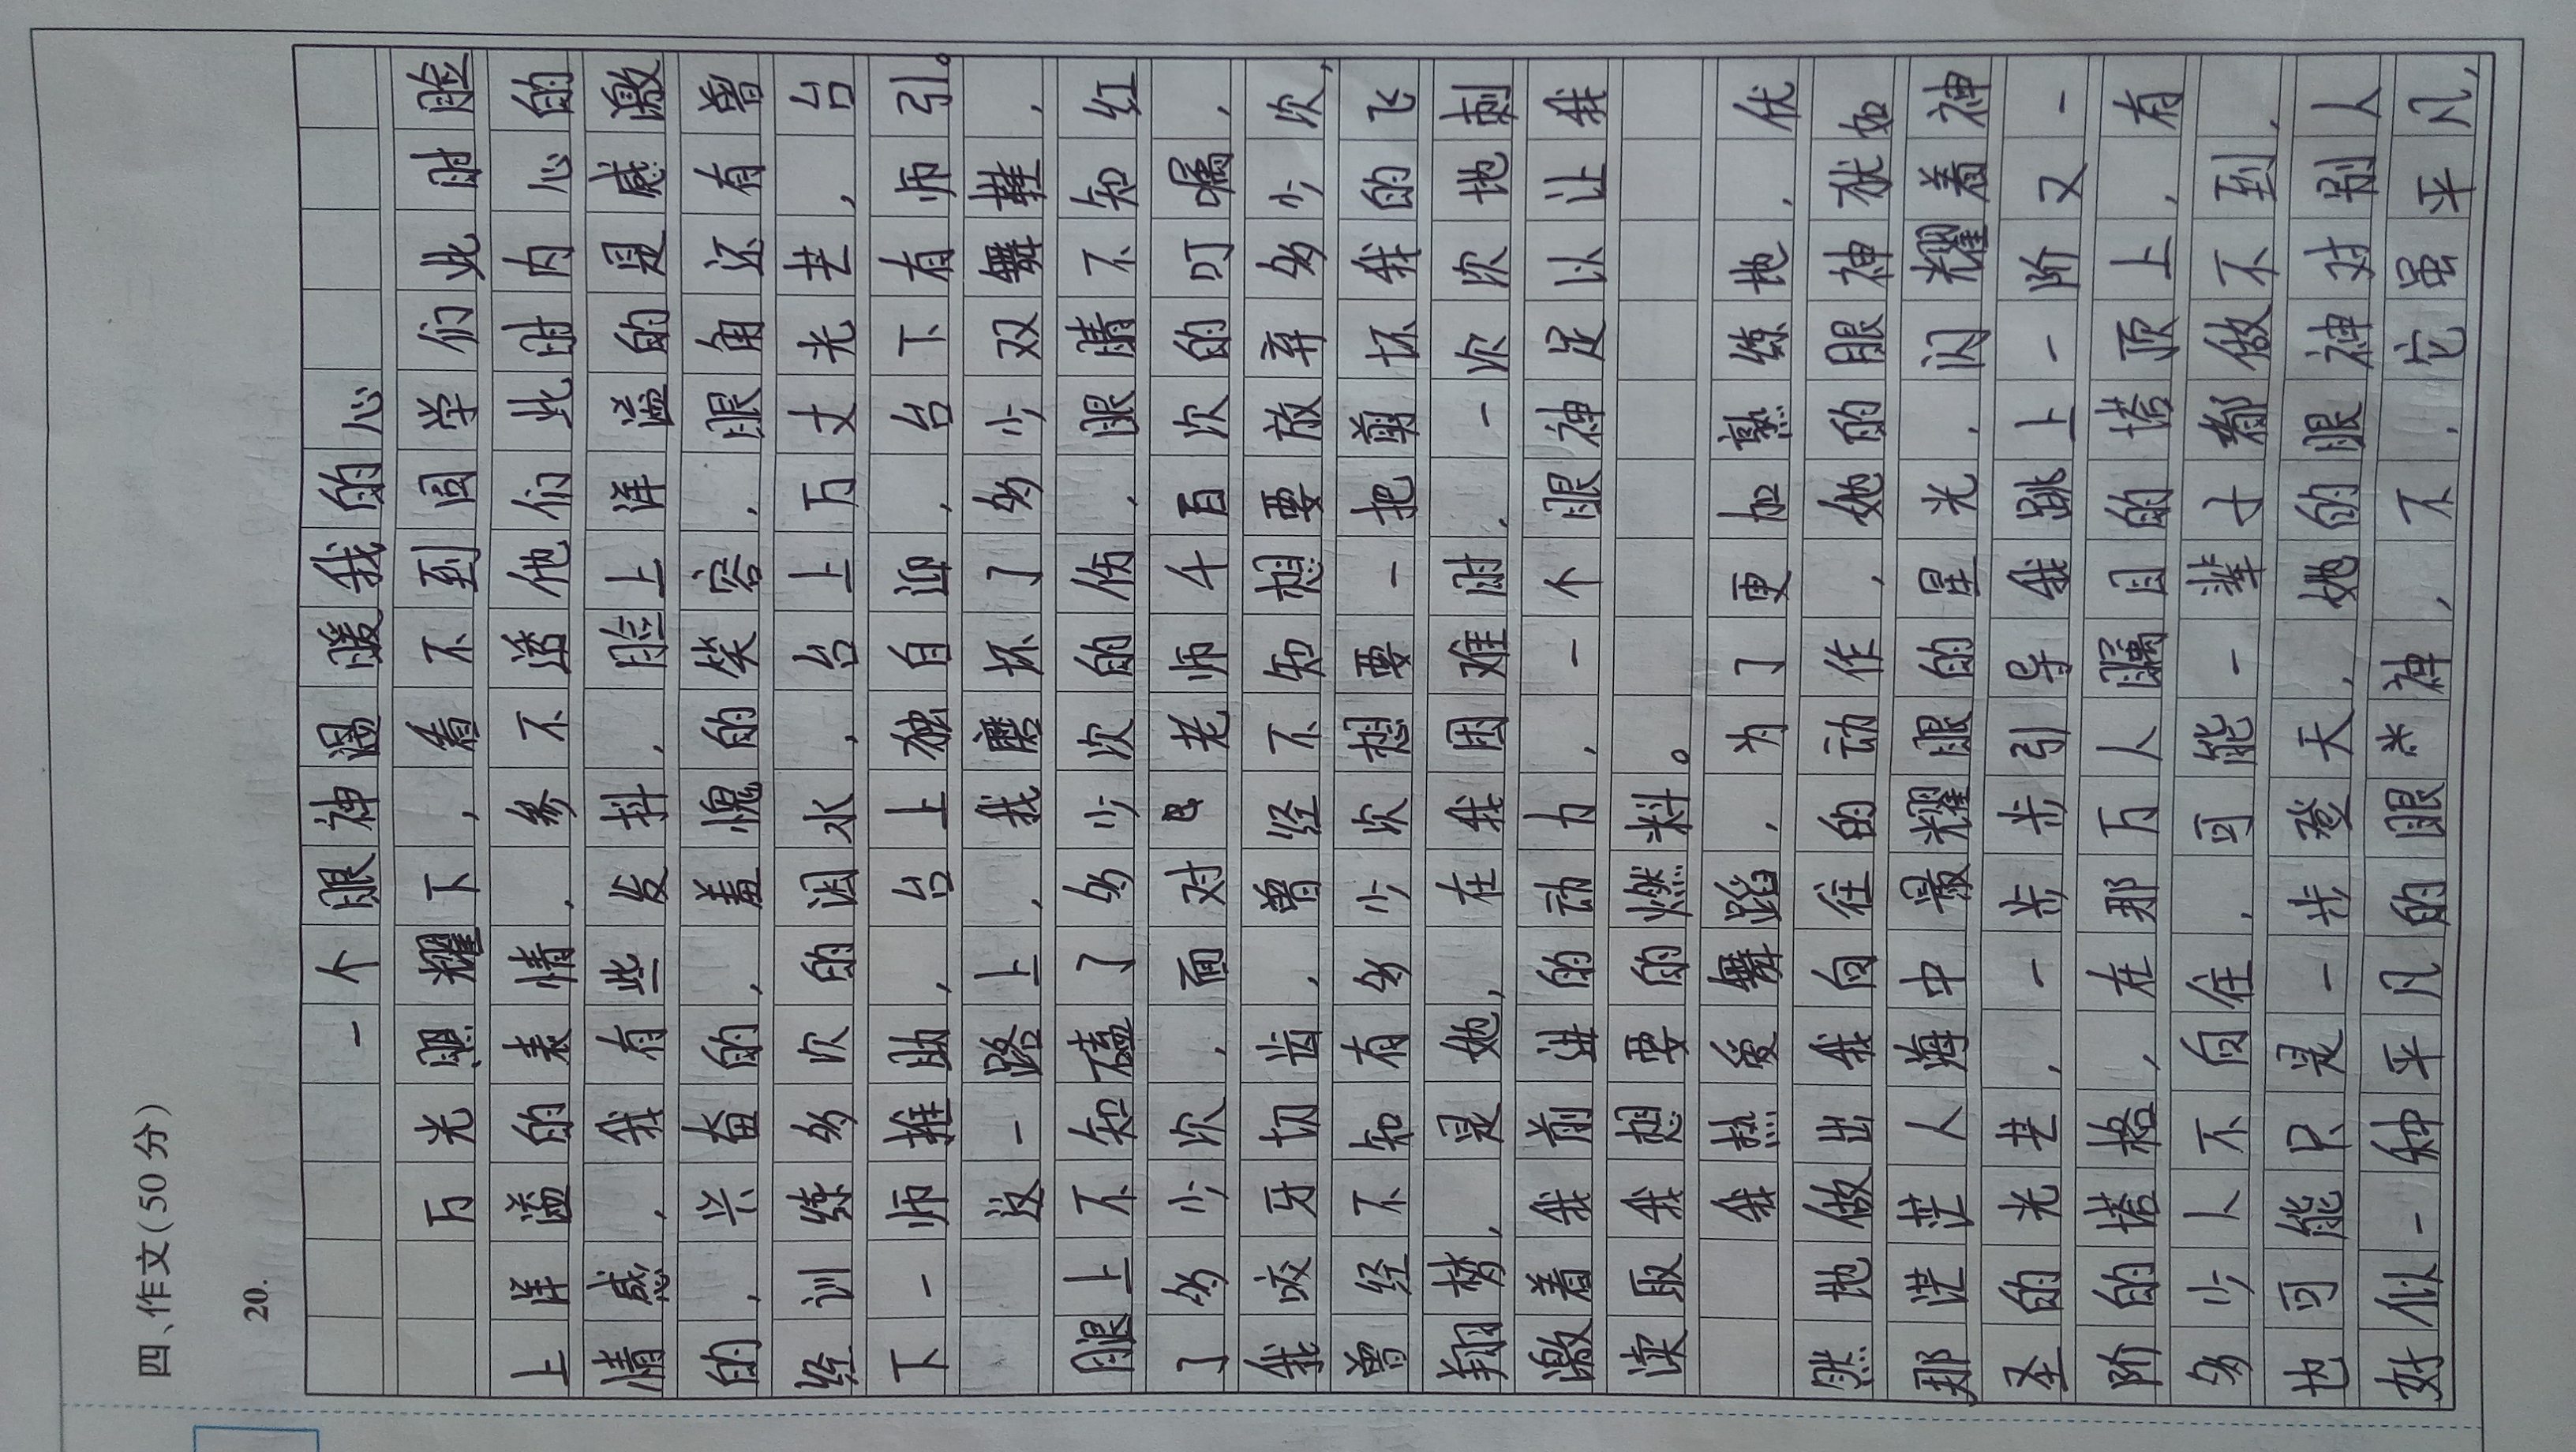 四、作文(50分)
20.
一个眼神温暖我的心
万光照耀下，看不到同学们此时脸
上洋溢的表情，参不透他们此时内心的
情感，我有些发抖，脸上洋溢的是感激
的，兴奋的，羞愧的笑容，眼角还有曾
经训练多次的泪水，台上万丈光芒，台
下一师推助，台上独自迎，台下有师引。
这一路上，我磨坏了多少双舞鞋，
腿上不知磕了多少次的伤，眼睛不知红
了多少次，面对老师千百次的叮嘱，
我咬牙切齿，曾经不知想要放弃多少次，
曾经不知有多少次想要一把剪坏我的飞
翔梦，是她，在我困难时，一次次地刺
激着我前进的动力，一个眼神足以让我
读取我想要的燃料。
我热爱舞蹈，为了更加熟练地，优
然地做出我向往的动作，她的眼神犹如
那茫茫人海中最耀眼的星光，闪耀着神
圣的光芒，一步步引导我跳上一阶又一
阶的塔格，在那万人瞩目的塔顶上，有
多少人不向往，可能一辈子都做不到，
也可能只是一步登天，她的眼神对别人
好似一种平凡的眼神，不，它虽平凡，